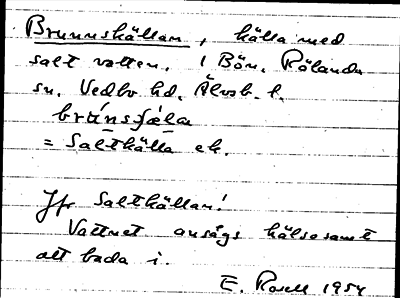 Brunnskällan, källa med
salt vatten. i Bön. Rölanda
sn. Vedbo hd. Älvsb. l.
brúnsʃæ̀la
= Saltkälla ek.
Jfr Saltkällan!
Vattnet ansågs hälsosamt
att bada i.
E. Rosell 1954